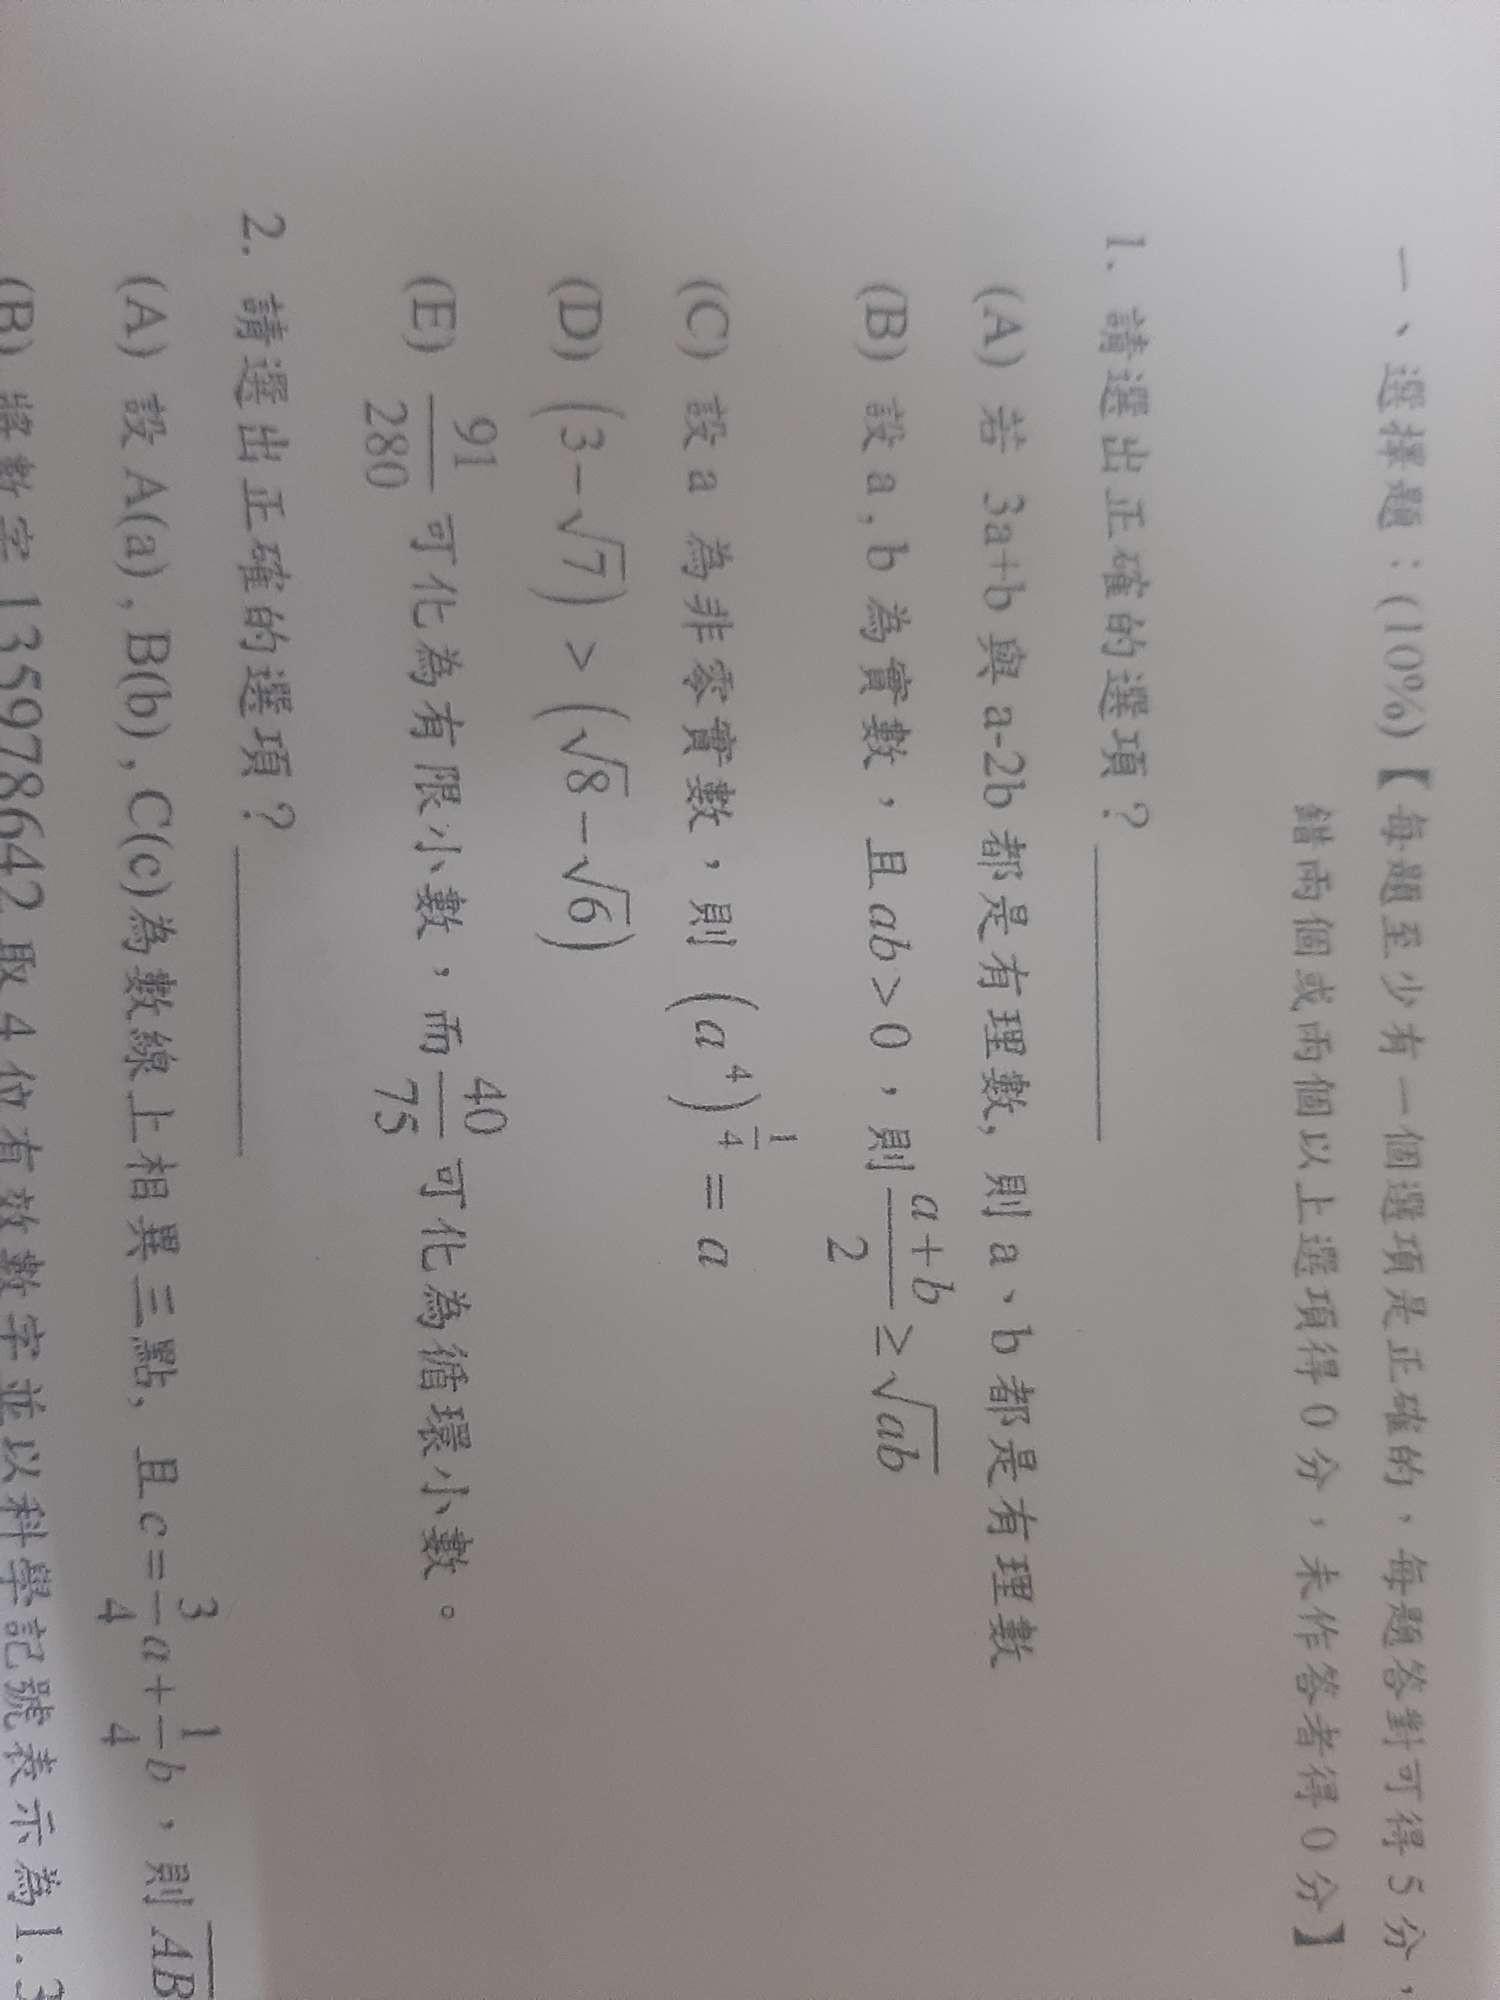 一、選擇題：(10%)【每題至少有一個選項是正確的，每題答對可得5分，
錯兩個或兩個以上選項得0分，未作答者得0分】
1. 請選出正確的選項？
(A) 若 3a+b 與 a-2b 都是有理數, 則 a、b 都是有理數
(B) 設 a, b 為實數，且 ab>0，則 \frac{a+b}{2} ≥ √(ab)
(C) 設 a 為非零實數，則 (a^4)^{\frac{1}{4}} = a
(D) (3−√7) > (√8−√6)
(E) \frac{91}{280} 可化為有限小數，而 \frac{40}{75} 可化為循環小數。
2. 請選出正確的選項？
(A) 設 A(a), B(b), C(c)為數線上相異三點, 且 c=\frac{3}{4}a+\frac{1}{4}b，則 \overline{AB}
(B) 將數字 135978642 取 4 位有效數字並以科學記號表示為 1.3